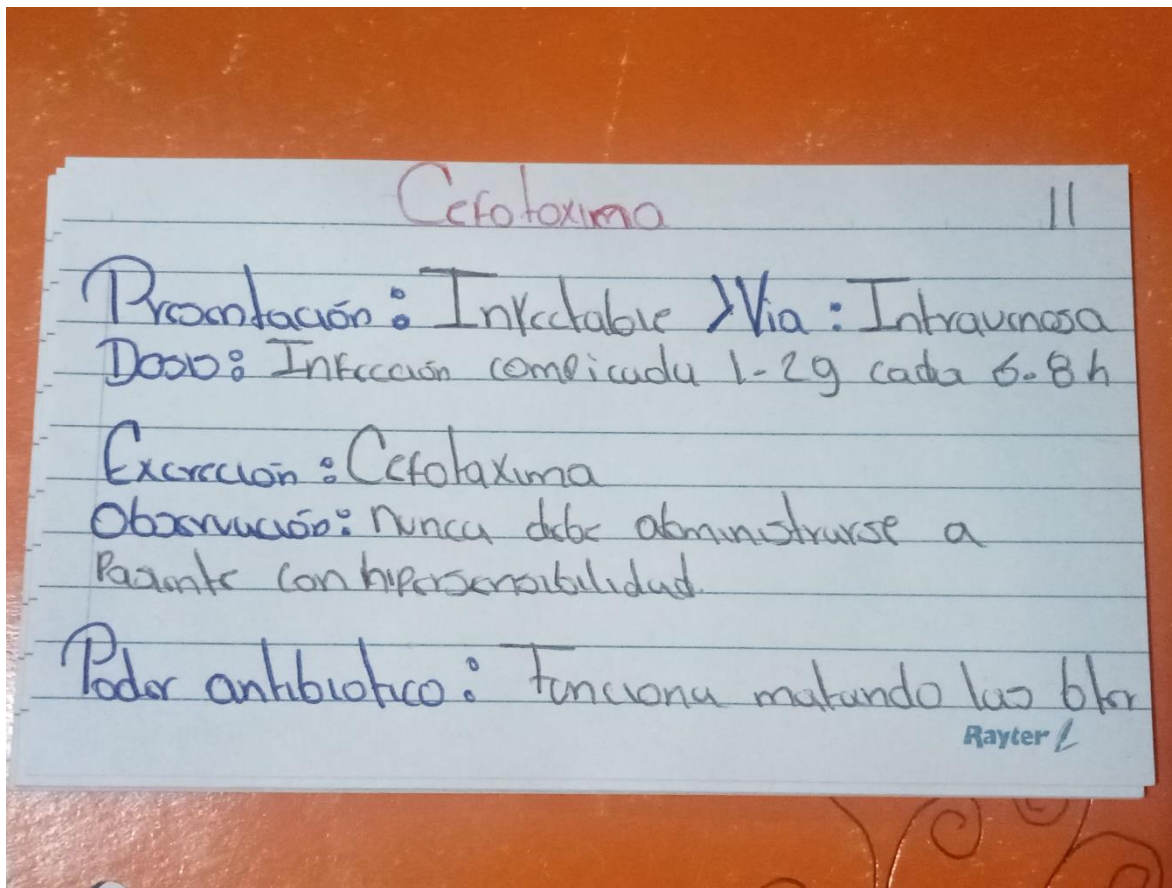 Cefotaxima 11
Presentación: Inyectable > Via: Intravenosa
Dosis: Infección complicada 1-2g cada 6-8h
Excreción: Cefotaxima
Observación: nunca debe administrarse a
Paciente con hipersensibilidad.
Poder antibiotico: Funciona matando las bter
Rayter